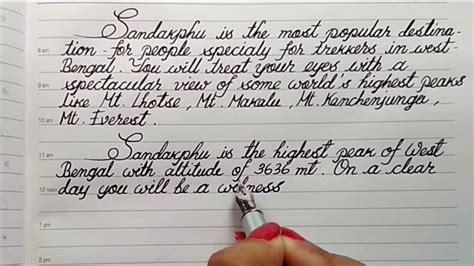 Sandakphu is the most popular destina-
8 am tion - for people specialy for trekkers in west-
Bengal. You will treat your eyes with a
9 am spectacular view of some world's highest peaks
like Mt. Lhotse, Mt. Makalu, Mt. Kanchenjunga,
10 am Mt. Everest.
11 am Sandakphu is the highest peak of West
Bengal with attitude of 3636 mt. On a clear
12 noon day you will be a witness
1 pm
2 pm